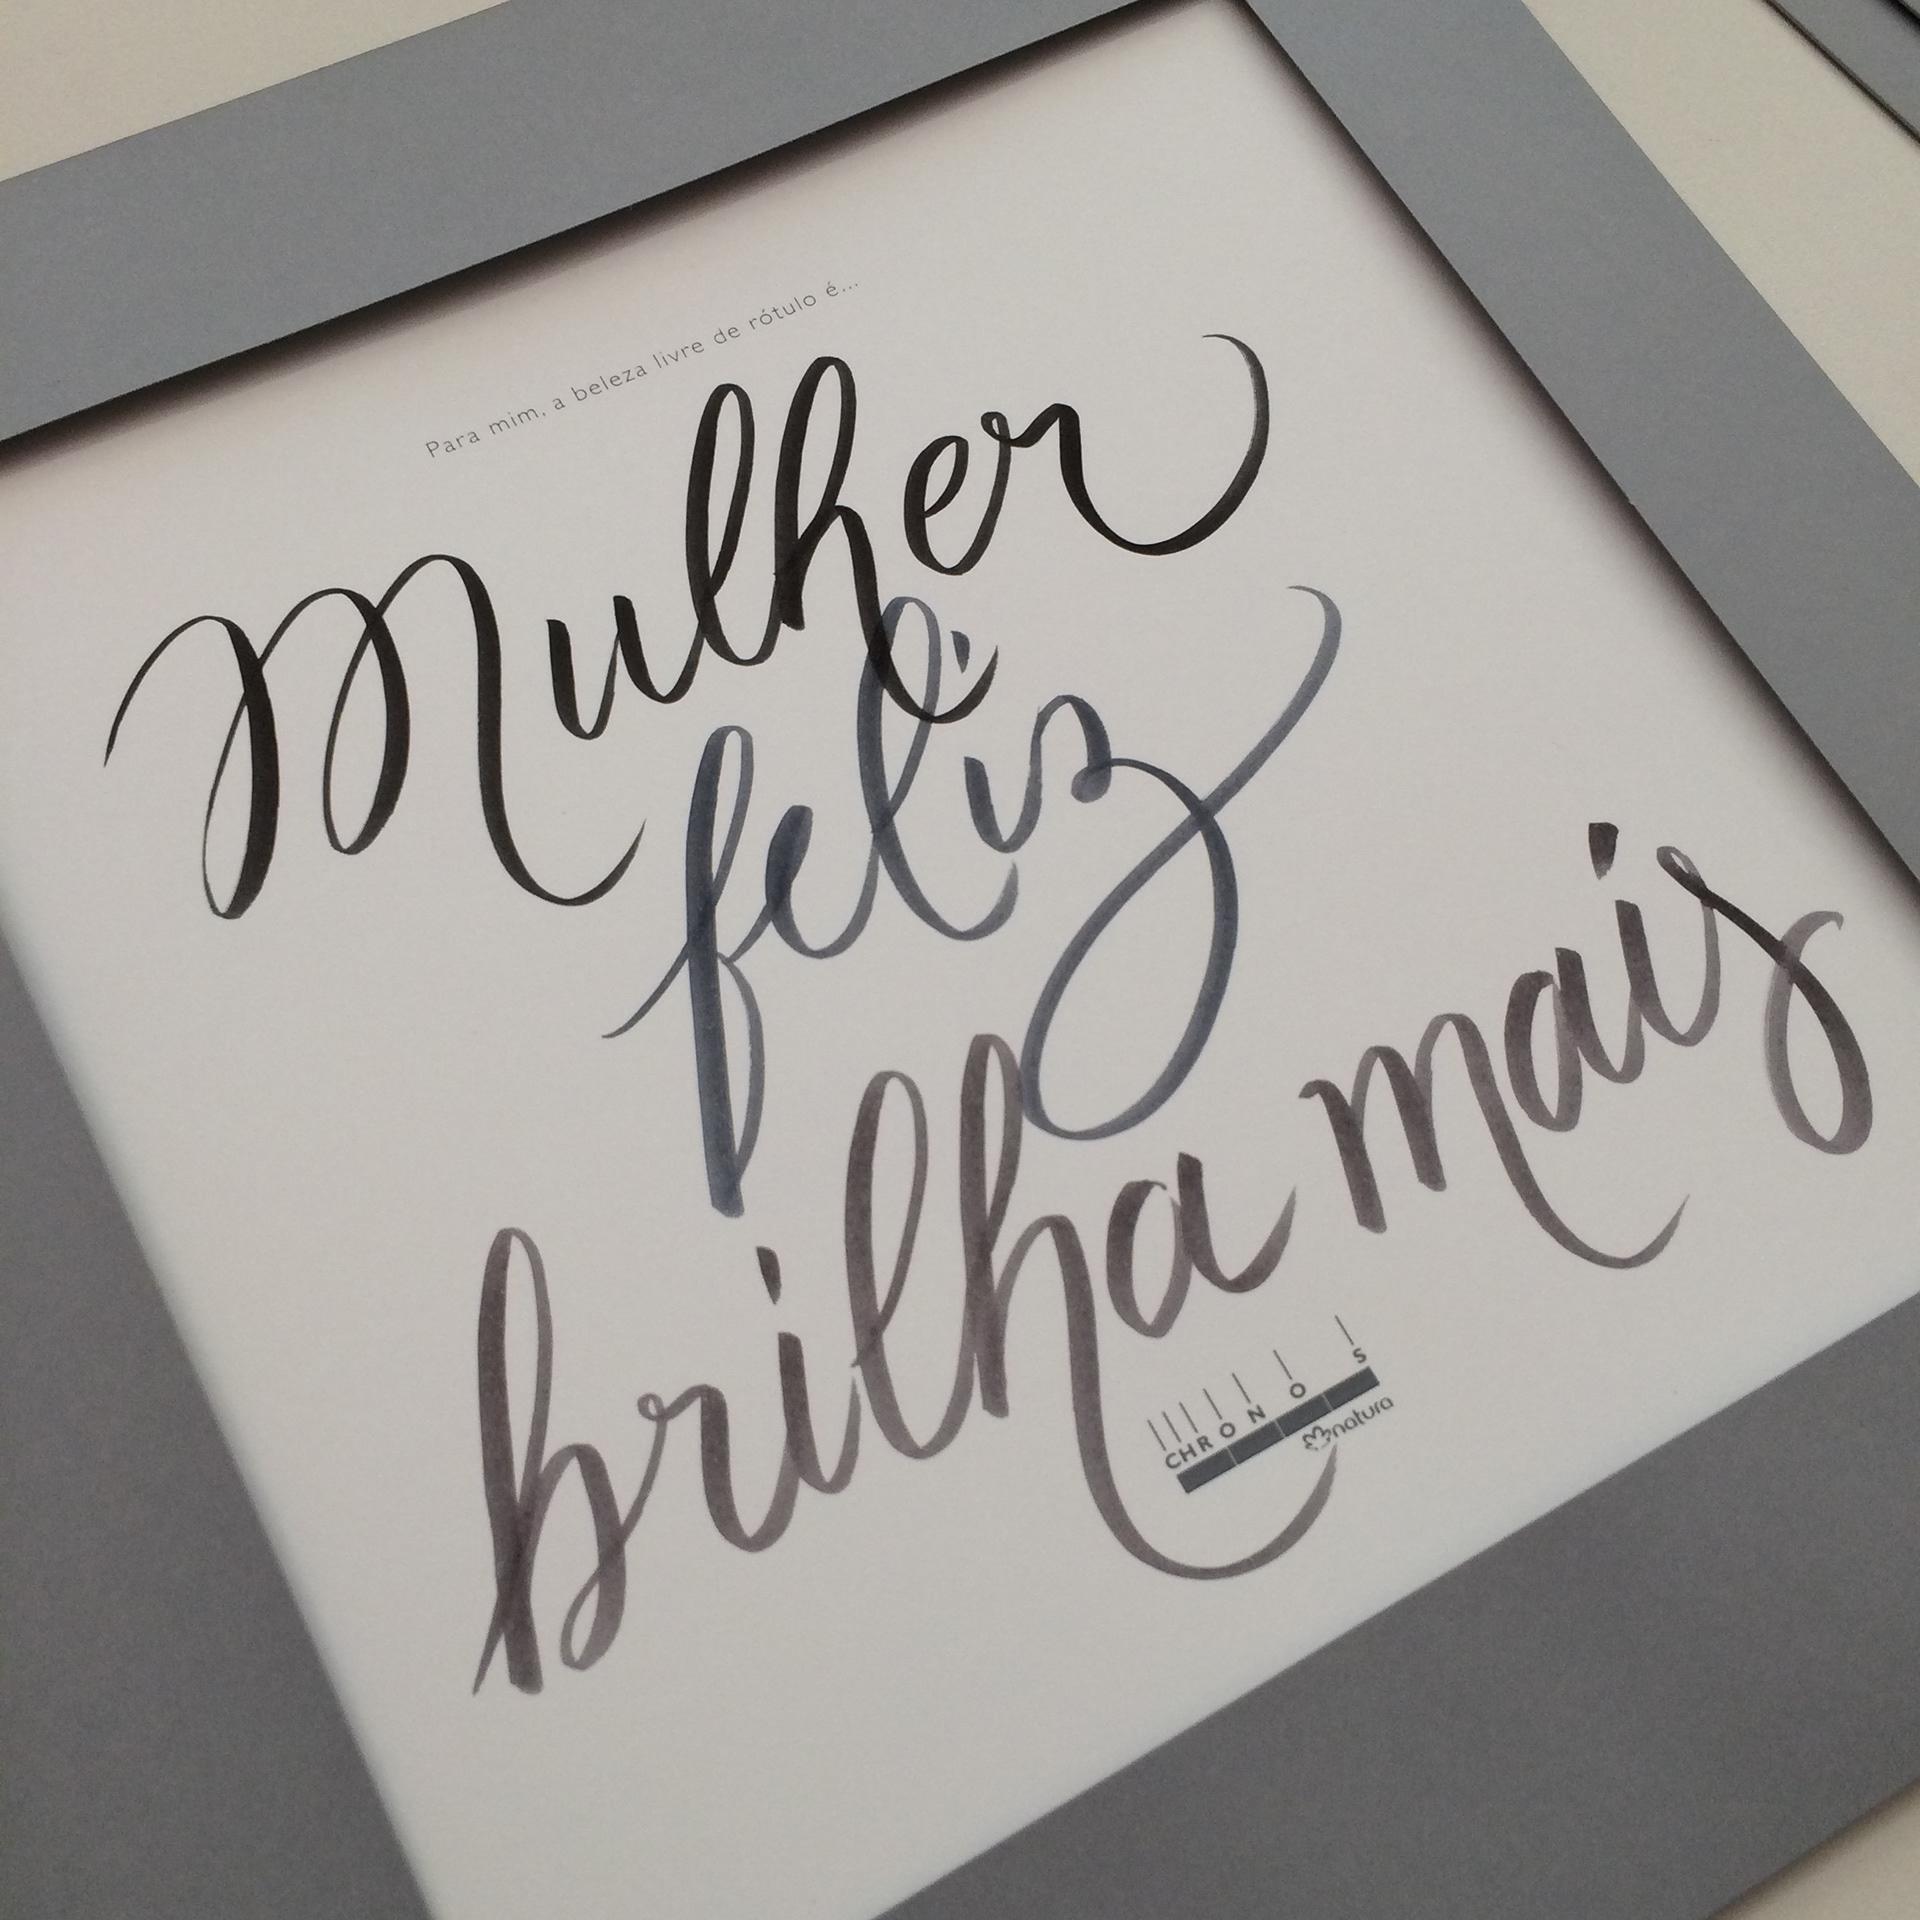 Para mim, a beleza livre de rótulo é...
Mulher
feliz
brilha mais
CHRONOS
natura